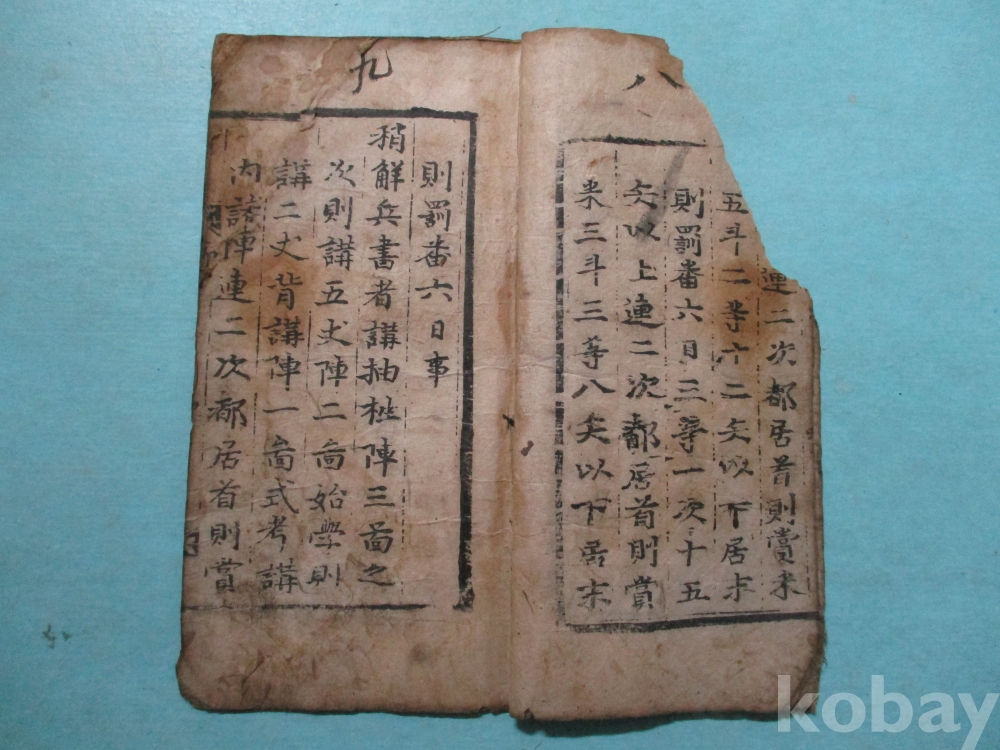 八
連二次都居首則賞米
五斗二等十二矢以下居末
則罰番六日三等一次十五
矢以上連二次都居首則賞
米三斗三等八矢以下居末
九
則罰番六日事
稍解兵書者講抽栍陣三啚之
次則講五丈陣二啚始學則
講二丈背講陣一啚式考講
內講陣連二次都居首則賞
kobay